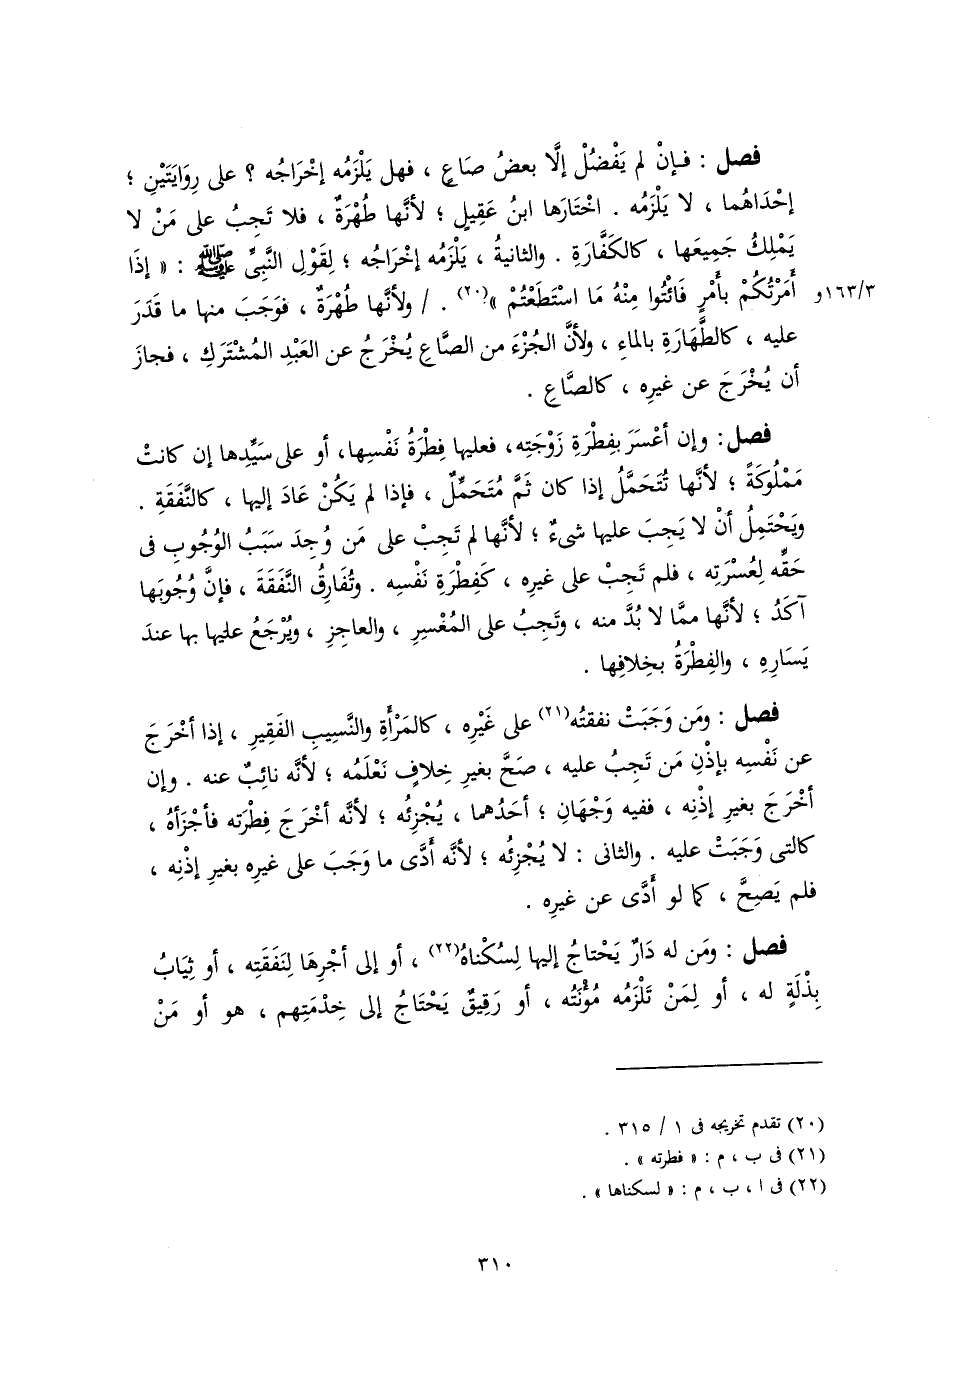 فصل : فإنْ لم يَفْضُلْ إلَّا بعضُ صَاعٍ ، فهل يَلْزَمُه إخْرَاجُه ؟ على رِوَايَتَيْنِ ؛
إحْدَاهُما ، لا يَلْزَمُه . اخْتَارَها ابنُ عَقِيلٍ ؛ لأنَّها طُهْرَةٌ ، فلا تَجِبُ على مَنْ لا
يَمْلِكُ جَمِيعَها ، كالكَفَّارَةِ . والثانيةُ ، يَلْزَمُه إخْرَاجُه ؛ لِقَوْلِ النَّبِىِّ ﷺ : « إذَا
أَمَرْتُكُمْ بأَمْرٍ فَائْتُوا مِنْهُ مَا اسْتَطَعْتُمْ »(٢٠) . / ولأنَّها طُهْرَةٌ ، فوَجَبَ منها ما قَدَرَ ١٦٣/٣و
عليه ، كالطَّهَارَةِ بالماءِ ، ولأنَّ الجُزْءَ من الصَّاعِ يُخْرَجُ عن العَبْدِ المُشْتَرَكِ ، فجازَ
أن يُخْرَجَ عن غيرِه ، كالصَّاعِ .
فصل : وإن أعْسَرَ بفِطْرَةِ زَوْجَتِه، فعليها فِطْرَةُ نَفْسِها، أو على سَيِّدِها إن كانتْ
مَمْلُوكَةً ؛ لأنَّها تُتَحَمَّلُ إذا كان ثَمَّ مُتَحَمِّلٌ ، فإذا لم يَكُنْ عَادَ إليها ، كالنَّفَقَةِ .
ويَحْتَمِلُ أنْ لا يَجِبَ عليها شىءٌ ؛ لأنَّها لم تَجِبْ على مَن وُجِدَ سَبَبُ الوُجُوبِ فى
حَقِّه لِعُسْرَتِه ، فلم تَجِبْ على غيرِه ، كَفِطْرَةِ نَفْسِه . وتُفَارِقُ النَّفَقَةَ ، فإنَّ وُجُوبَها
آكَدُ ؛ لأنَّها ممَّا لا بُدَّ منه ، وتَجِبُ على المُعْسِرِ ، والعاجِزِ ، ويُرْجَعُ عليها بها عندَ
يَسَارِهِ ، والفِطْرَةُ بخِلافِها .
فصل : ومَن وَجَبَتْ نفقتُه(٢١) على غَيْرِه ، كالمَرْأَةِ والنَّسِيبِ الفَقِيرِ ، إذا أخْرَجَ
عن نَفْسِه بإذْنِ مَن تَجِبُ عليه ، صَحَّ بغيرِ خِلافٍ نَعْلَمُه ؛ لأنَّه نائِبٌ عنه . وإن
أخْرَجَ بغيرِ إذْنِه ، ففيه وَجْهَانِ ؛ أحَدُهما ، يُجْزِئُه ؛ لأنَّه أخْرَجَ فِطْرَته فأجْزَأهُ ،
كالتى وَجَبَتْ عليه . والثانى : لا يُجْزِئُه ؛ لأنَّه أَدَّى ما وَجَبَ على غيرِه بغيرِ إذْنِه ،
فلم يَصِحَّ ، كما لو أَدَّى عن غيرِه .
فصل : ومَن له دَارٌ يَحْتاجُ إليها لِسُكْناهُ(٢٢) ، أو إلى أجْرِهَا لِنَفَقَتِه ، أو ثِيَابُ
بِذْلَةٍ له ، أو لِمَنْ تَلْزَمُه مُؤْنَتُه ، أو رَقِيقٌ يَحْتَاجُ إلى خِدْمَتِهم ، هو أو مَنْ
(٢٠) تقدم تخريجه فى ١ / ٣١٥ .
(٢١) فى ب ، م : « فطرته » .
(٢٢) فى ا ، ب ، م : « لسكناها » .
٣١٠